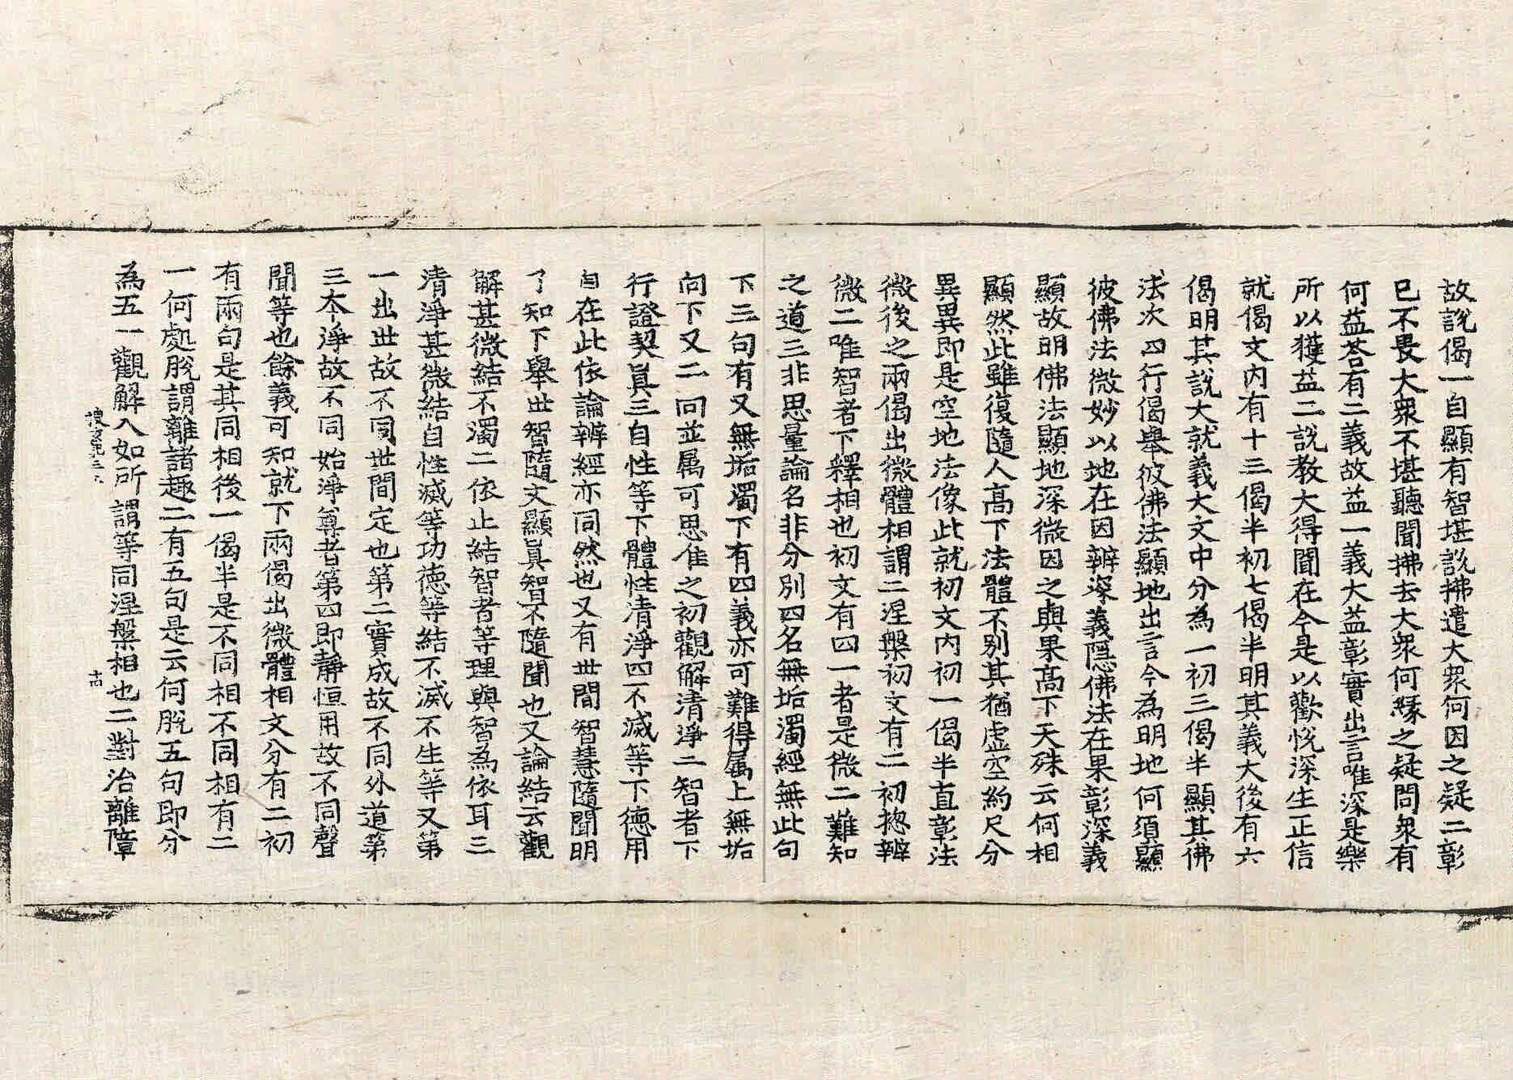 故說偈一自顯有智堪說拂遣大眾何因之疑二彰
已不畏大眾不堪聽聞拂去大眾何緣之疑問眾有
何益荅有二義故益一義大益彰實出言唯深是樂
所以獲益二說教大得聞在今是以歡悅深生正信
就偈文內有十三偈半初七偈半明其義大後有六
偈明其說大就義大文中分為一初三偈半顯其佛
法次四行偈舉彼佛法顯地出言今為明地何須顯
彼佛法微妙以地在因辨深義隱佛法在果彰深義
顯故明佛法顯地深微因之與果高下天殊云何相
顯然此雖復隨人高下法體不別其猶虛空約尺分
異異即是空地法像此就初文內初一偈半直彰法
微後之兩偈出微體相謂二涅槃初文有二初惣辨
微二唯智者下釋相也初文有四一者是微二難知
之道三非思量論名非分別四名無垢濁經無此句
下三句有又無垢濁下有四義亦可難得屬上無垢
向下又二向並屬可思惟之初觀解清淨二智者下
行證契真三自性等下體性清淨四不滅等下德用
自在此依論辨經亦同然也又有世間智慧隨聞明
了知下舉世智隨文顯真智不隨聞也又論結云觀
解甚微結不濁二依止結智者等理與智為依耳三
清淨甚微結自性滅等功德等結不滅不生等又第
一出世故不同世間定也第二實成故不同外道第
三本淨故不同始淨尊者第四即靜恒用故不同聲
聞等也餘義可知就下兩偈出微體相文分有二初
有兩句是其同相後一偈半是不同相不同相有二
一何處脫謂離諸趣二有五句是云何脫五句即分
為五一觀解入如所謂等同涅槃相也二對治離障